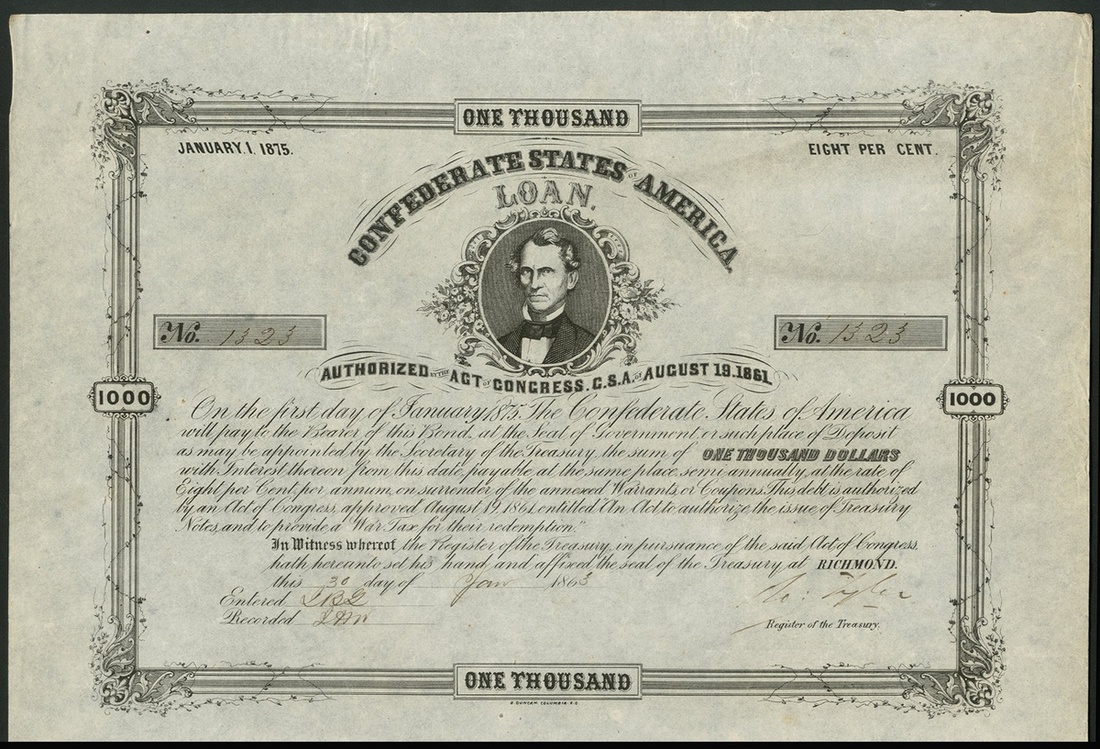 ONE THOUSAND
JANUARY.1.1875.
EIGHT PER CENT.
CONFEDERATE STATES OF AMERICA.
LOAN.
No. 1323
No. 1323
AUTHORIZED BY THE ACT OF CONGRESS. C.S.A. OF AUGUST 19.1861
1000
1000
On the first day of January 1875, The Confederate States of America
will pay to the Bearer of this Bond, at the Seat of Government, or such place of Deposit
as may be appointed by the Secretary of the Treasury, the sum of ONE THOUSAND DOLLARS
with Interest thereon from this date, payable at the same place, semi-annually, at the rate of
Eight per Cent, per annum, on surrender of the annexed Warrants, or Coupons. This debt is authorized
by an Act of Congress, approved August 19, 1861, entitled "An Act to authorize the issue of Treasury
Notes, and to provide a War Tax for their redemption."
In Witness whereof, the Register of the Treasury, in pursuance of the said Act of Congress,
hath hereunto set his hand, and affixed the seal of the Treasury, at RICHMOND.
this 30 day of Jan 1863
Entered
Recorded
Tyler
Register of the Treasury.
ONE THOUSAND
DUNCAN. COLUMBIA. S.C.